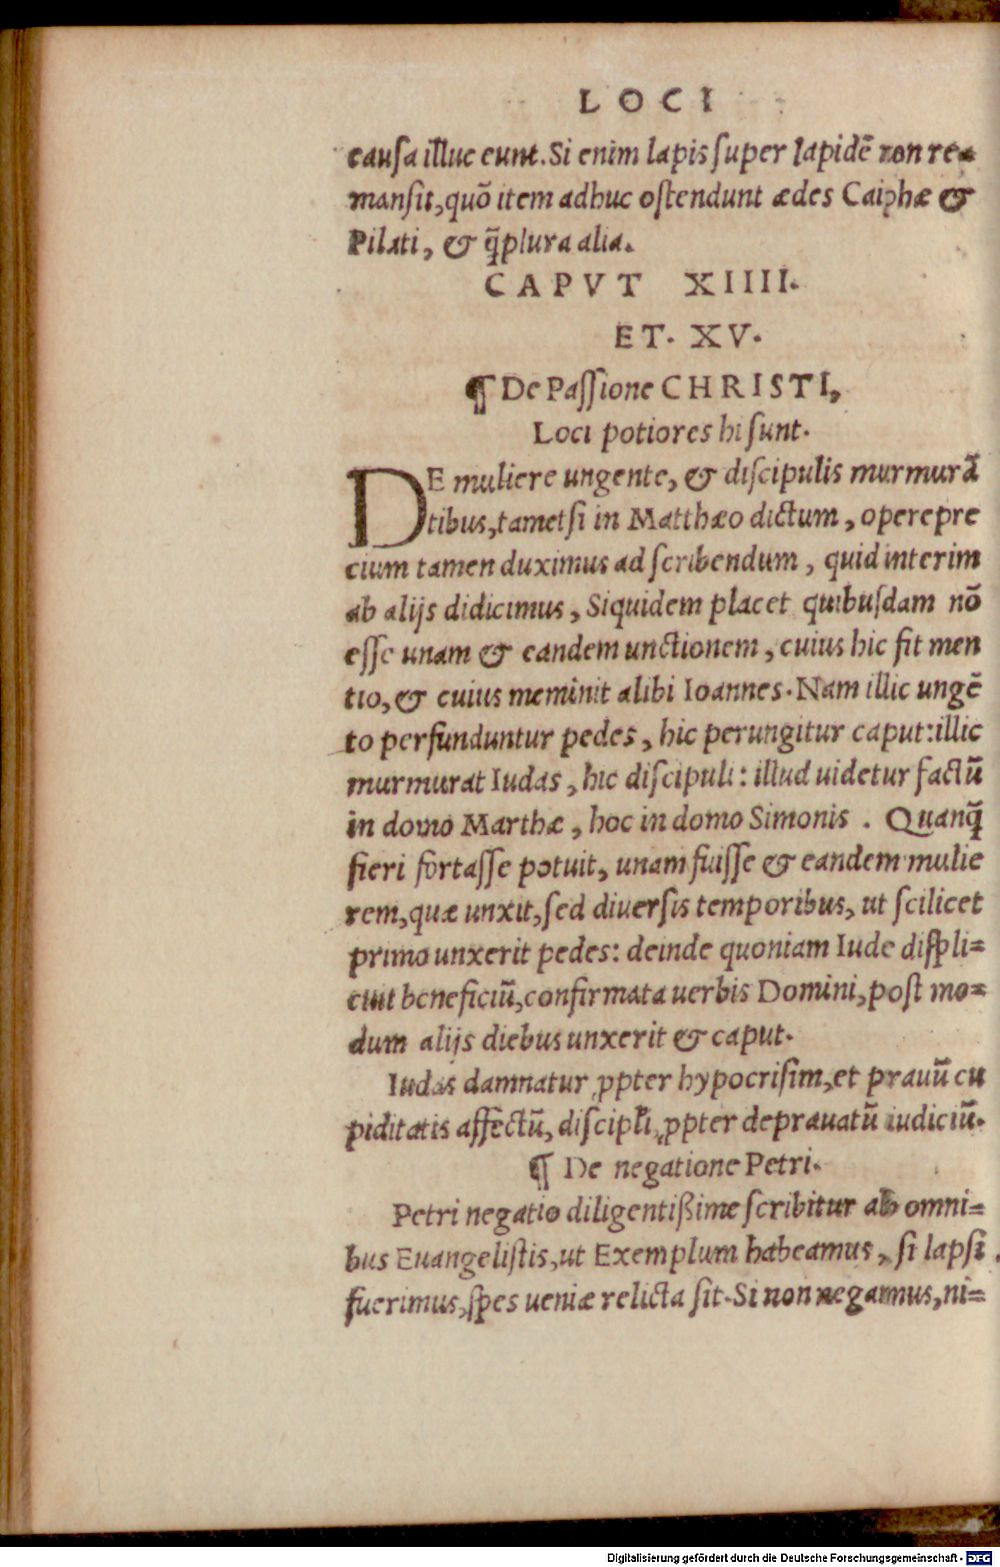 LOCI
causa illuc eunt. Si enim lapis super lapidē non re-
mansit, quō item adhuc ostendunt ædes Caiphæ &
Pilati, & q̃plura alia.
CAPVT XIIII.
ET. XV.
¶ De Passione CHRISTI,
Loci potiores hi sunt.
DE muliere ungente, & discipulis murmurā
tibus, tametsi in Matthæo dictum, operepre
cium tamen duximus ad scribendum, quid interim
ab alijs didicimus, Siquidem placet quibusdam nō
esse unam & eandem unctionem, cuius hic fit men
tio, & cuius meminit alibi Ioannes. Nam illic ungē
to perfunduntur pedes, hic perungitur caput: illic
murmurat Iudas, hic discipuli: illud uidetur factū
in domo Marthæ, hoc in domo Simonis. Quanq̃
fieri fortasse potuit, unam fuisse & eandem mulie
rem, quæ unxit, sed diuersis temporibus, ut scilicet
primo unxerit pedes: deinde quoniam Iude displi=
cuit beneficiū, confirmata uerbis Domini, post mo=
dum alijs diebus unxerit & caput.
Iudas damnatur ꝓpter hypocrisim, et prauū cu
piditatis affectū, discipl̃i, ꝓpter deprauatū iudiciū.
¶ De negatione Petri.
Petri negatio diligentißime scribitur ab omni=
bus Euangelistis, ut Exemplum habeamus, si lapsi
fuerimus, spes ueniæ relicta sit. Si non negamus, ni=
Digitalisierung gefördert durch die Deutsche Forschungsgemeinschaft - DFG